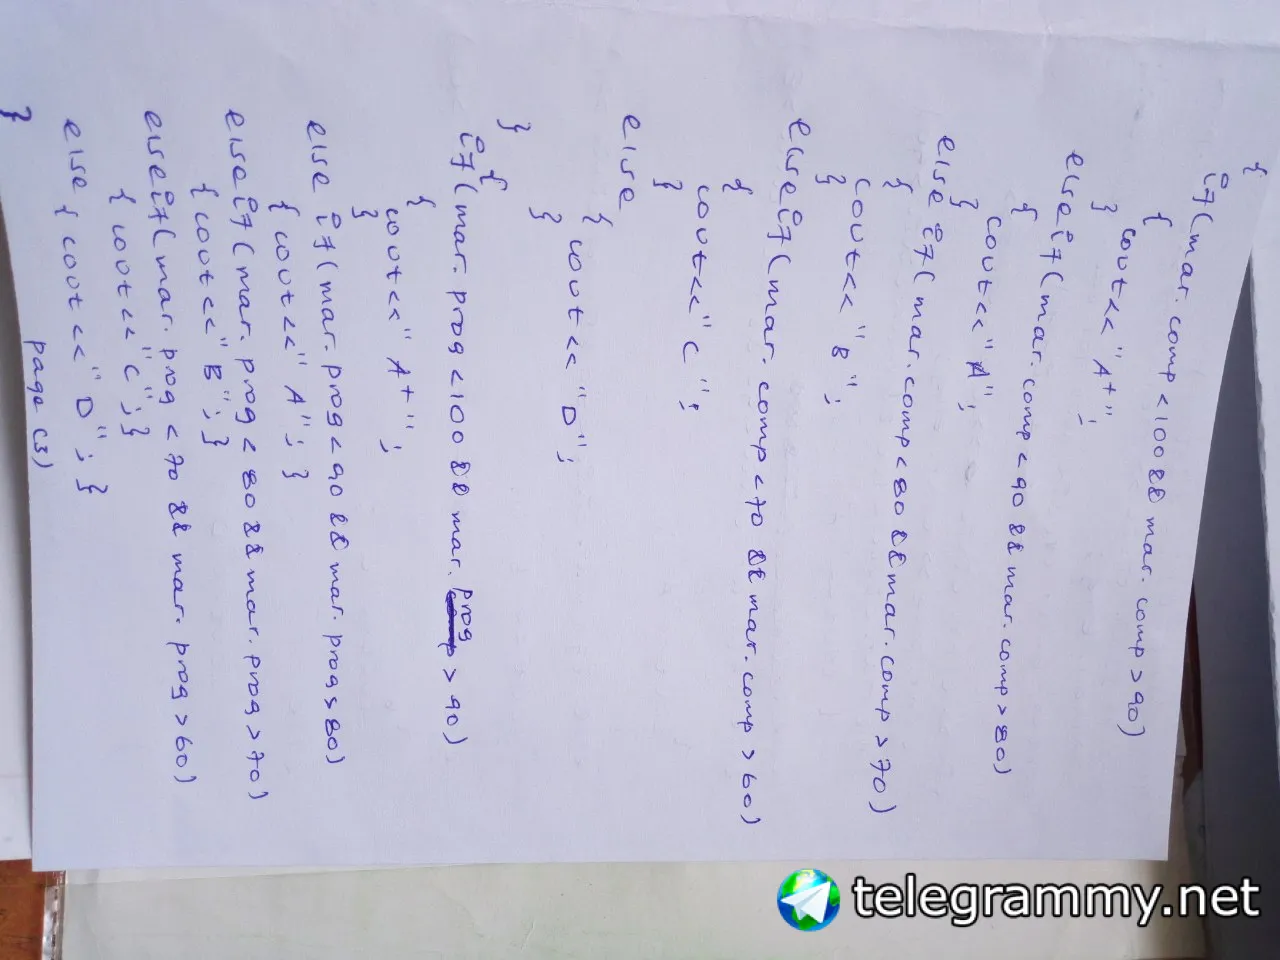 {
if(mar.comp<100&&mar.comp>90)
{
cout<<"A+";
}
else if(mar.comp<90&&mar.comp>80)
{
cout<<"A";
}
else if(mar.comp<80&&mar.comp>70)
{
cout<<"B";
}
else if(mar.comp<70&&mar.comp>60)
{
cout<<"C";
}
else
{
cout<<"D";
}
}
{
if(mar.prog<100&&mar.prog>90)
{
cout<<"A+";
}
else if(mar.prog<90&&mar.prog>80)
{cout<<"A";}
else if(mar.prog<80&&mar.prog>70)
{cout<<"B";}
else if(mar.prog<70&&mar.prog>60)
{cout<<"C";}
else{cout<<"D";}
}
page (3)
telegrammy.net